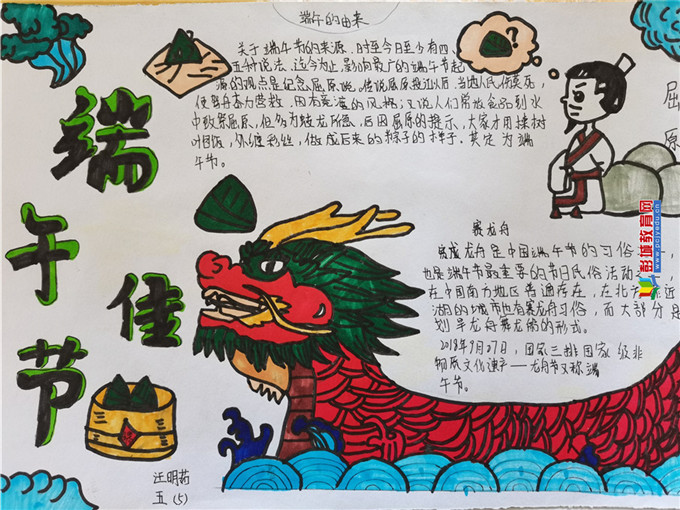 端午的由来
关于端午节的来源,时至今日至少有四、
五种说法,迄今为止,影响最广的端午节起
源的观点是纪念屈原说。传说屈原投江以后,当地人民伤其死,
便驾舟奋力营救,因有竞渡的风俗;又说人们常放食品到水
中致祭屈原,但多为蛟龙所食,后因屈原的提示,大家才用楝树
叶包饭,外缠彩丝,做成后来的粽子的样子,其定为端
午节。
屈
原
端
午
节
佳
赛龙舟
赛龙舟是中国端午节的习俗,
也是端午节最重要的节日民俗活动
在中国南方地区普遍存在,在北方近
湖的城市也有赛龙舟习俗,而大部分是
划旱龙舟舞龙的形式。
国家级非
物质文化遗产——龙舟节又称端
午节。
彭城教育网
五(5)